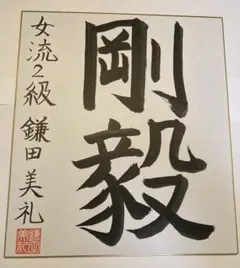 剛毅
女流2級 鎌田美礼